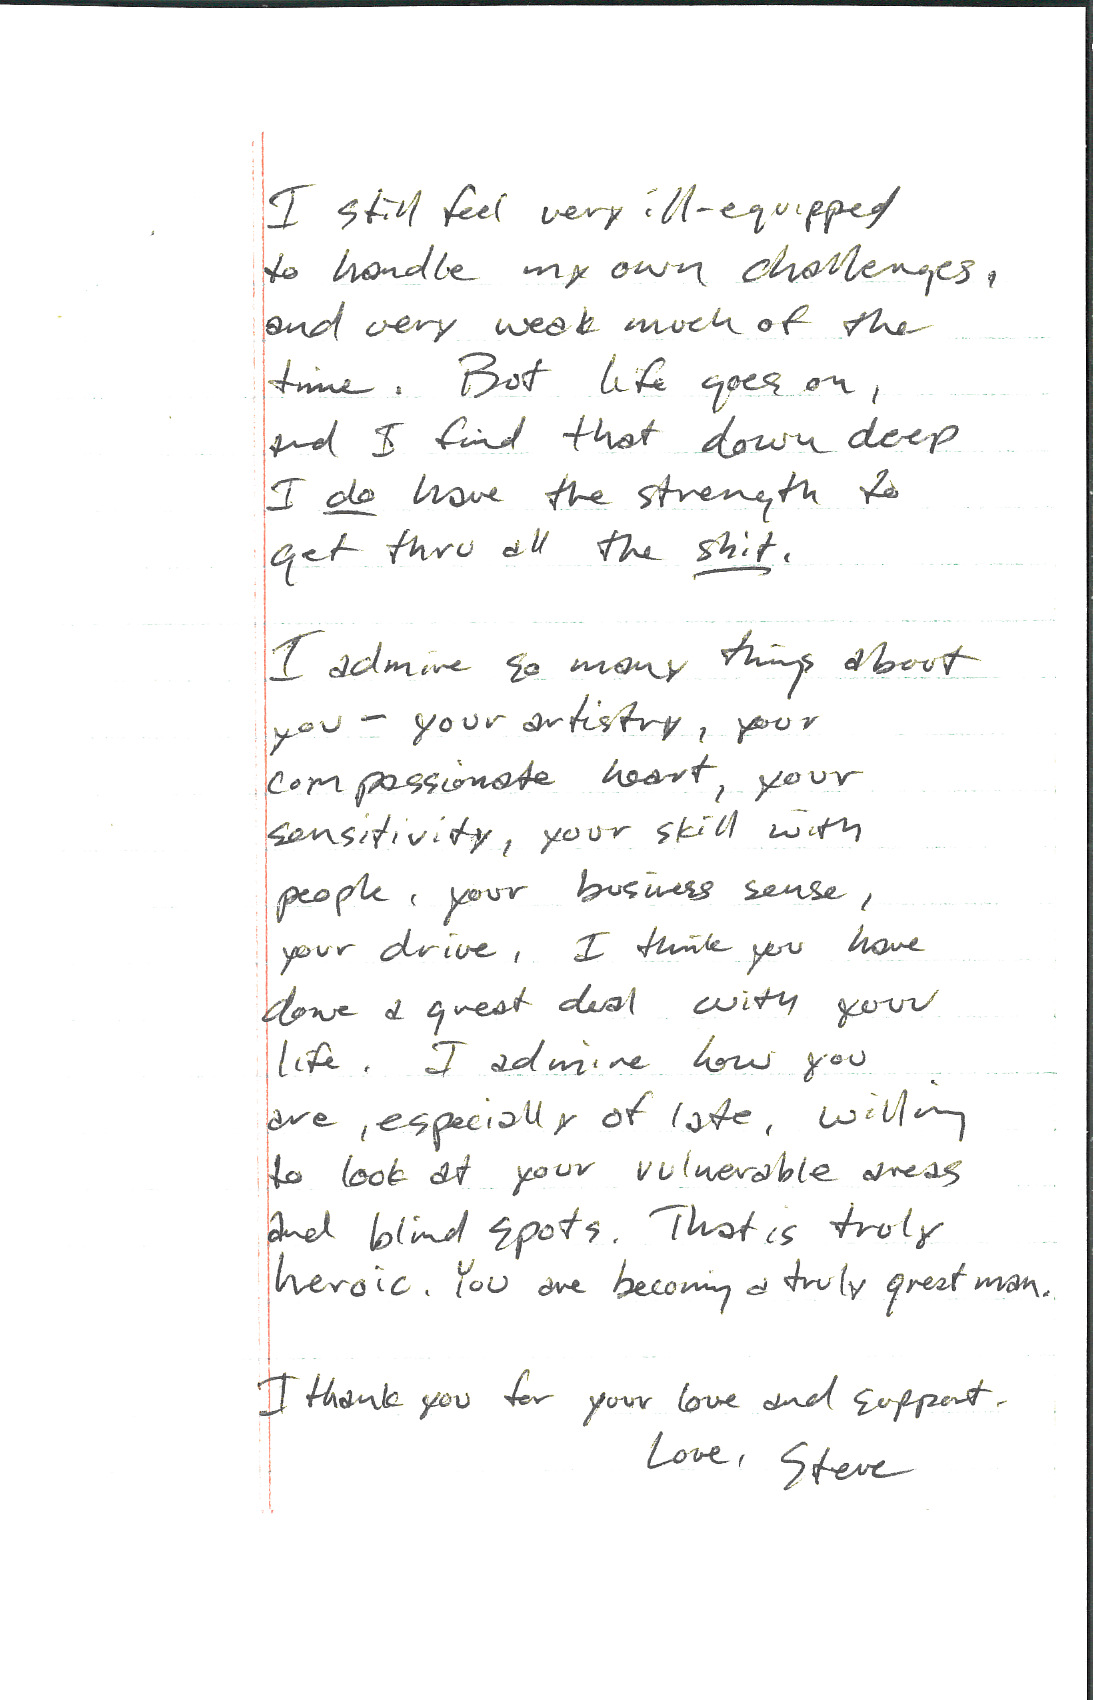 I still feel very ill-equipped
to handle my own challenges,
and very weak much of the
time. But life goes on,
and I find that down deep
I do have the strength to
get thru all the shit.
I admire so many things about
you - your artistry, your
compassionate heart, your
sensitivity, your skill with
people, your business sense,
your drive. I think you have
done a great deal with your
life. I admire how you
are, especially of late, willing
to look at your vulnerable areas
and blind spots. That is truly
heroic. You are becoming a truly great man.
I thank you for your love and support.
Love, Steve